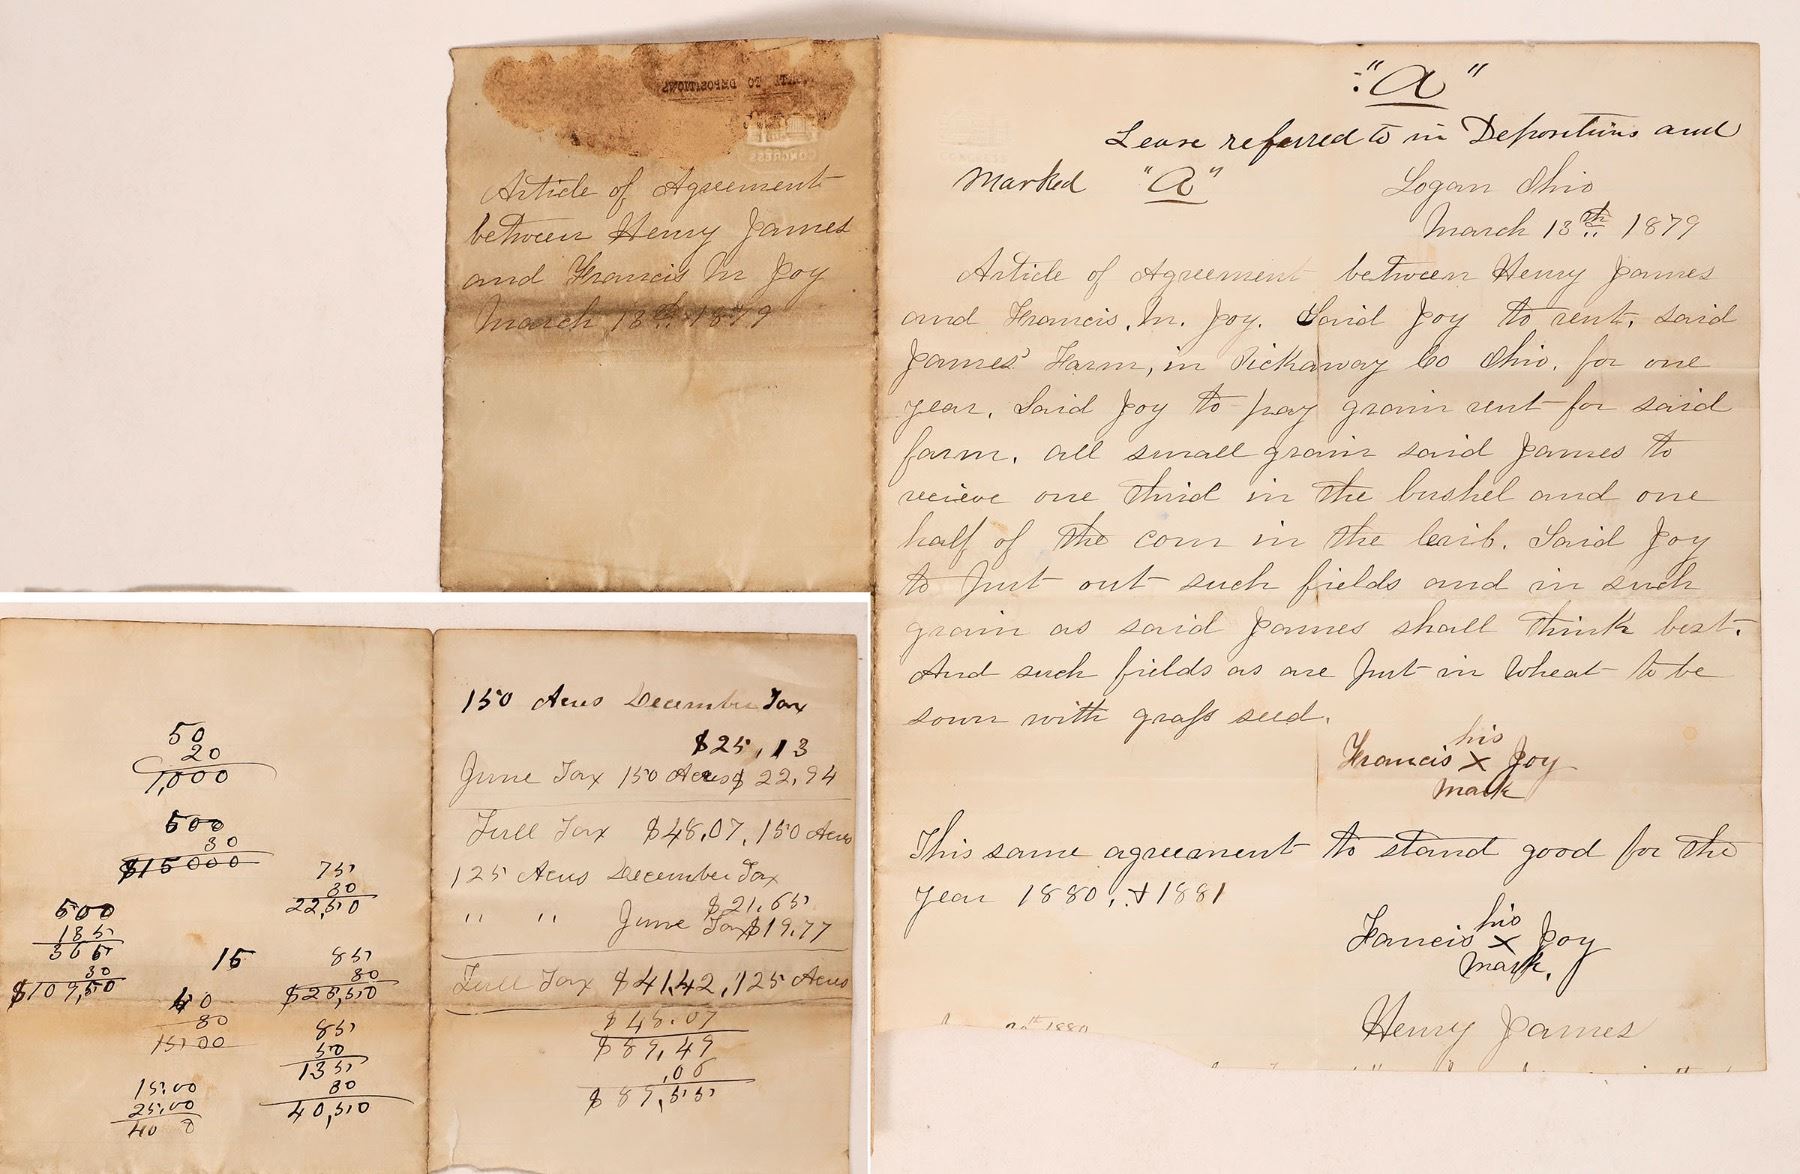 TO DEPOSITIONS
CONGRESS
Article of Agreement
between Henry James
and Francis M Joy
March 13th. 1879
"A"
Lease referred to in Depositions and
Marked "A"
Logan Ohio
March 13th.. 1879
Article of Agreement between Henry James
and Francis. M. Joy. Said Joy to rent, said
James' Farm, in Pickaway Co Ohio. for one
year. Said Joy to pay grain rent for said
farm. all small grain said James to
recieve one third in the bushel and one
half of the corn in the Crib. Said Joy
to put out such fields and in such
grain as said James shall think best.
And such fields as are put in Wheat to be
sown with grass seed.
his
Francis X Joy
mark
This same agreement to stand good for the
year 1880, & 1881
his
Francis X Joy
mark.
Henry James
1880
50
20
1,000
500
30
$15000
75
30
22,50
500
135
365
30
$109,50
15
85
30
$25,50
50
30
1500
85
50
135
30
40,50
15.00
25.00
40 0
150 Acres December Tax
$25,13
June Tax 150 Acres $22,94
Full Tax $48,07, 150 Acres
125 Acres December Tax
$21,65
" " June Tax $19,77
Full Tax $41,42, 125 Acres
$48.07
$89,49
,06
$89,55